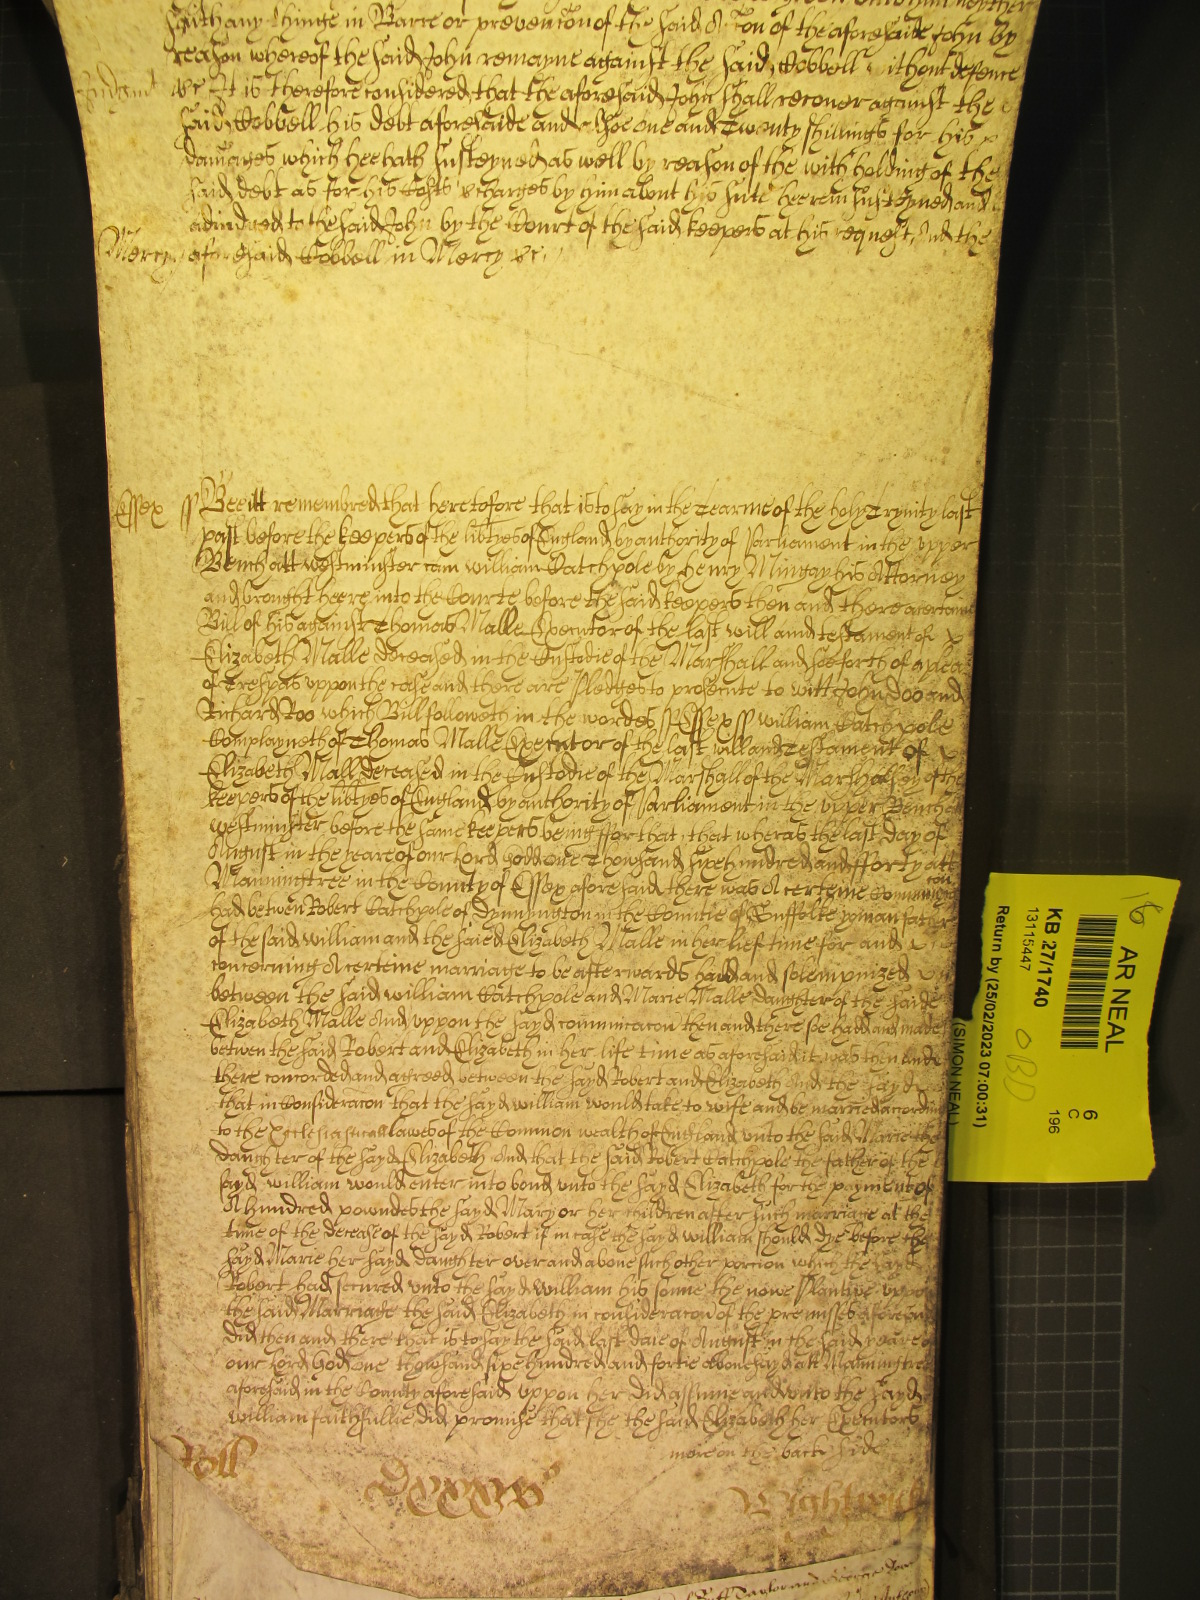 saith any thinge in Barre or prevencon of the said Accon of the aforesaide John by
reason whereof the said John remayne against the said Cobbell without defence
Judgmt &c It is therefore considered that the aforesaid John shall recover against the
said Cobbell his debt aforesaide and alsoe one and Twenty shillings for his
damages which hee hath susteyned as well by reason of the with holding of the
said debt as for his Costs & charges by him about his sute herein susteyned and
adiudged to the said John by the Court of the said keepers at his request And the
Mercy aforesaid Cobbell in Mercy &c
Essex ss Bee itt remembred that heretofore that is to say in the Tearme of the holy Trynity last
past before the keepers of the lib'tyes of England by authority of Parliament in the upper
Bench att Westminster cam William Catchpole by Henry Mingay his Attorney
and brought heere into the Courte before the said keepers then and there a certaine
Bill of his against Thomas Malle Executor of the last will and testament of
Elizabeth Malle deceased in the Custodie of the Marshall and soe forth of a plea
of Trespas uppon the case and there are Pledges to prosecute to witt John Doo and
Richard Roo which Bill followeth in the wordes ss Essex ss William Catchpole
Complayneth of Thomas Malle Executor of the last will and Testament of
Elizabeth Mall deceased in the Custodie of the Marshall of the Marshalsey of the
keepers of the lib'tyes of England by authority of Parliament in the upper Bench at
Westminster before the same keepers being ffor that that wheras the last day of
August in the yeare of our Lord God one Thowsand sixe hundred and fforty att
Manningtree in the County of Essex aforesaid there was A certeine Communicacon
had betwen Robert Catchpole of Dynnington in the Countie of Suffolke yoman father
of the said William and the saied Elizabeth Malle in her lief time for and
concerning A certeine marriage to be afterwards hadd and solempnized
between the said William Catchpole and Marie Malle daughter of the saide
Elizabeth Malle And uppon the sayd communicacon then and there soe hadd and made
betwen the said Robert and Elizabeth in her life time as aforesaid it was then and
there concorded and agreed between the sayd Robert and Elizabeth And the sayd
that in Consideracon that the sayd William would take to wife and be married according
to the Ecclesiasticall lawes of the Common wealth of England unto the said Marie the
daughter of the sayd Elizabeth And that the said Robert Catchpole the father of the
sayd William would enter into bond unto the sayd Elizabeth for the payment of
A hundred powndes the sayd Mary or her children after such marriage at the
time of the decease of the sayd Robert if in case the sayd William should dye before the
sayd Marie her sayd daughter over and above such other porcion which the sayd
Robert had secured unto the sayd William his sonne the nowe Plantive uppon
the said Marriage the said Elizabeth in consideracon of the premisses aforesaid
did then and there that is to say the said last daie of August in the said yeare of
our Lord God one thowsand sixe hundred and fortie abovesayd att Manningtree
aforesaid in the County aforesaid uppon her did assume and unto the sayd
William faithfullie did promise that she the said Elizabeth her Executors
more on the back side
Roll Dxxxv Wightwick
AR NEAL
KB 27/1740
13115447
Return by (25/02/2023 07:00:31)
(SIMON NEAL)
6
C
196